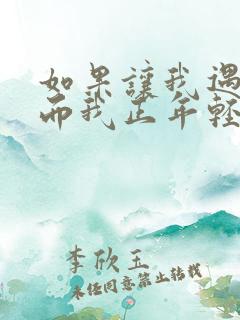 如果讓我遇
而我正年輕
李欣玉
未经同意禁止转载